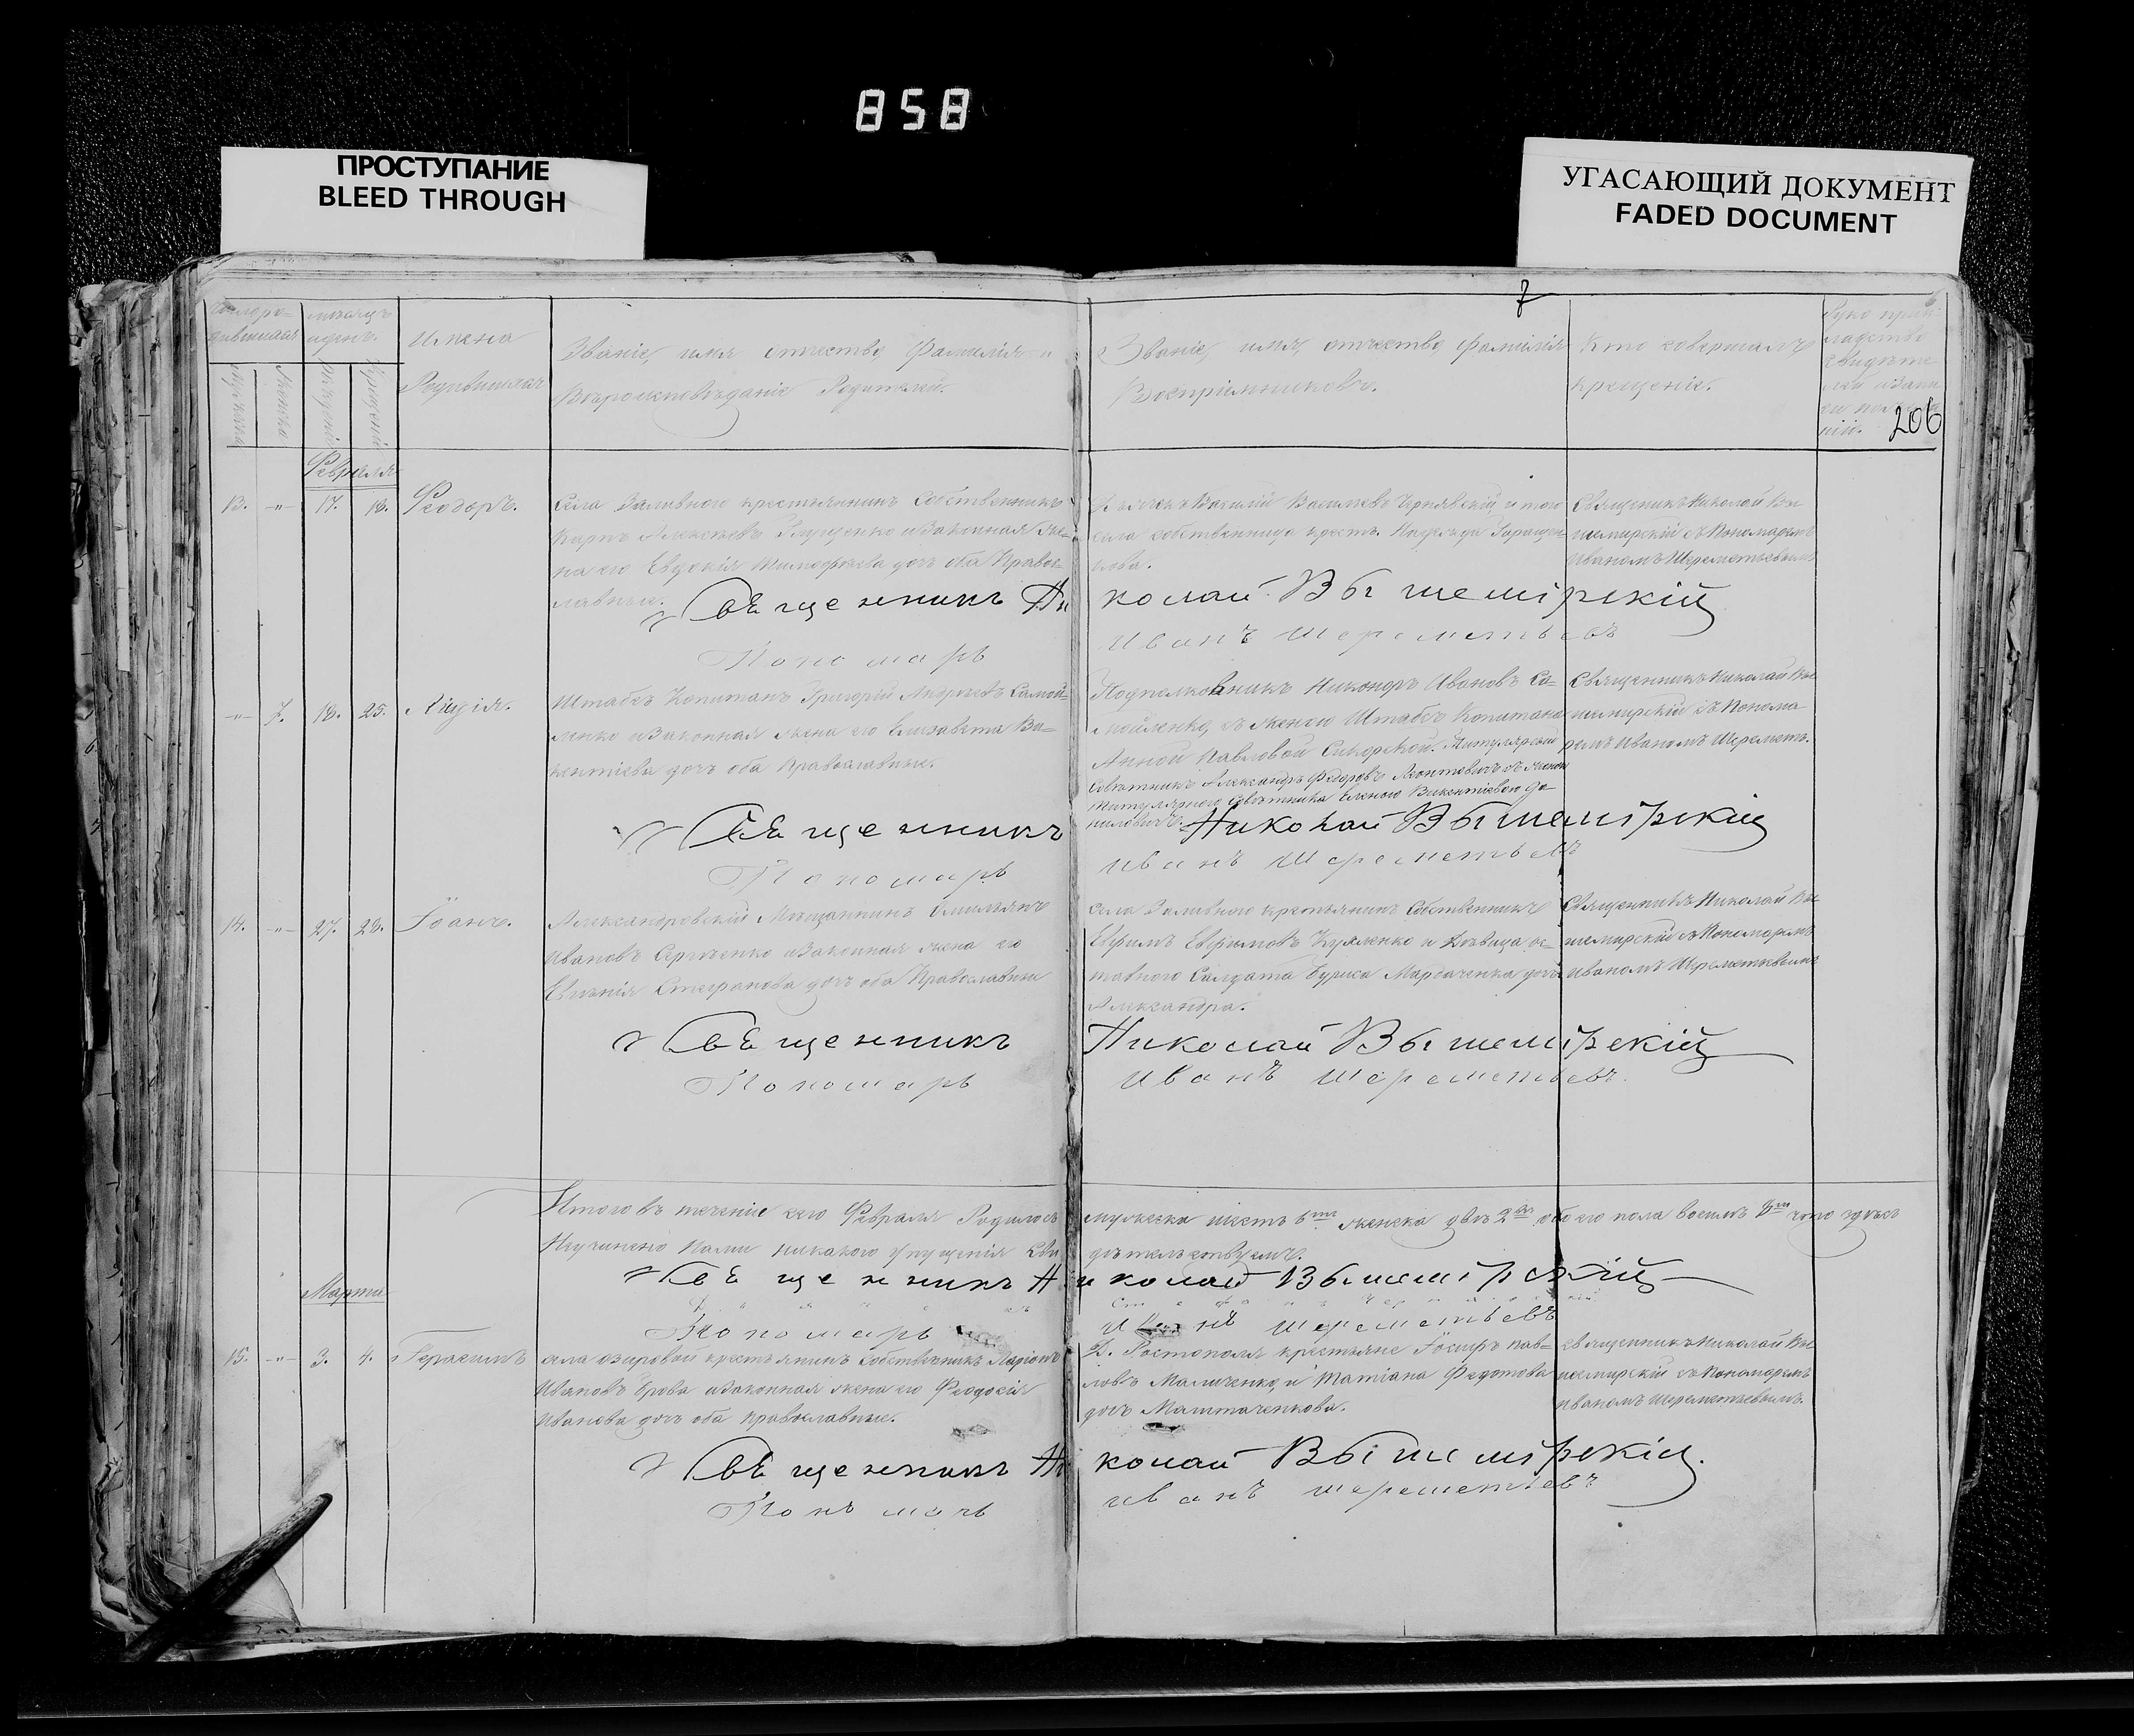 858
ПРОСТУПАНИЕ
BLEED THROUGH
УГАСАЮЩИЙ ДОКУМЕНТ
FADED DOCUMENT
7
206
Имена
Родившихся
Званіе, имя отчество Фамилія и
Вѣроисповѣданіе Родителей.
Званіе, имя, отчество фамилія
Воспріемниковъ.
Кто совершалъ
крещеніе.
Февраля
13. -"- 17. 18. Феодоръ.
Села Заливного крестьянинъ Собственникъ
Карпъ Алексѣевъ Глущенко и Законная Же-
на его Евдокія Тимофѣева дочь оба Правос-
лавные.
Василій Васильевъ Чернявскій, и того
села собственница крест. Надежда
Священникъ Николай Вы
шемирскій съ Пономаремъ
Иваномъ Шереметьевымъ
Священникъ Николай Вышемірскій
Пономарь Иванъ Шереметьевъ
-"- 7. 18. 25. Лидія.
Штабсъ Капитанъ Григорій Андреевъ Самой-
ленко и Законная жена его Елисавета Ви-
кентіева дочь оба Православные.
Подполковникъ Никоноръ Ивановъ Са-
мойленко, съ женою Штабсъ Капитана
Анной Павловой Сикорской. Титулярный
Совѣтникъ Александръ Федоровъ Леонтовичъ съ женою
Титулярного Совѣтника Еленою Викентіевою Да-
ниловичъ.
Священникъ Николай Вы
шемирскій съ Понома
ремъ Иваномъ Шеремет.
Священникъ Николай Вышемірскій
Пономарь Иванъ Шереметьевъ
14. -"- 27. 28. Іоанъ.
Александровскій Мѣщанинъ Емильянъ
Ивановъ Сергіенко и Законная жена его
Евгенія Стефанова дочь оба Православные
Села Заливного крестьянинъ Собственникъ
Евфимъ Евфимовъ Куяленко и Дѣвица от-
ставного Солдата Бориса Марбаченка дочь
Александра.
Священникъ Николай Вы
шемирскій съ Пономаремъ
Иваномъ Шереметьевымъ
Священникъ Николай Вышемірскій
Пономарь Иванъ Шереметьевъ
Итого въ теченіе сего Февраля Родилось мужеска шесть 6ть женска двѣ 2вѣ обоего пола восемь 8мь что здѣсь
Неучинено Нами никакого упущенія Сви дѣтельствуемъ.
Священникъ Николай Вышемірскій
Пономарь Иванъ Шереметьевъ
Марта
15. -"- 3. 4. Герасимъ
села Озировой крестьянинъ Собственникъ Ларіонъ
Ивановъ Ерова и Законная жена его Феодосія
Иванова дочь оба православные.
Д. Ростополя крестьяне Іосифъ Пав-
ловъ Маличенко, и Татіана Федотова
дочь Маштаченкова.
Священникъ Николай Вы
шемирскій съ Пономаремъ
Иваномъ Шереметьевымъ.
Священникъ Николай Вышемірскій
Иванъ Шереметьевъ